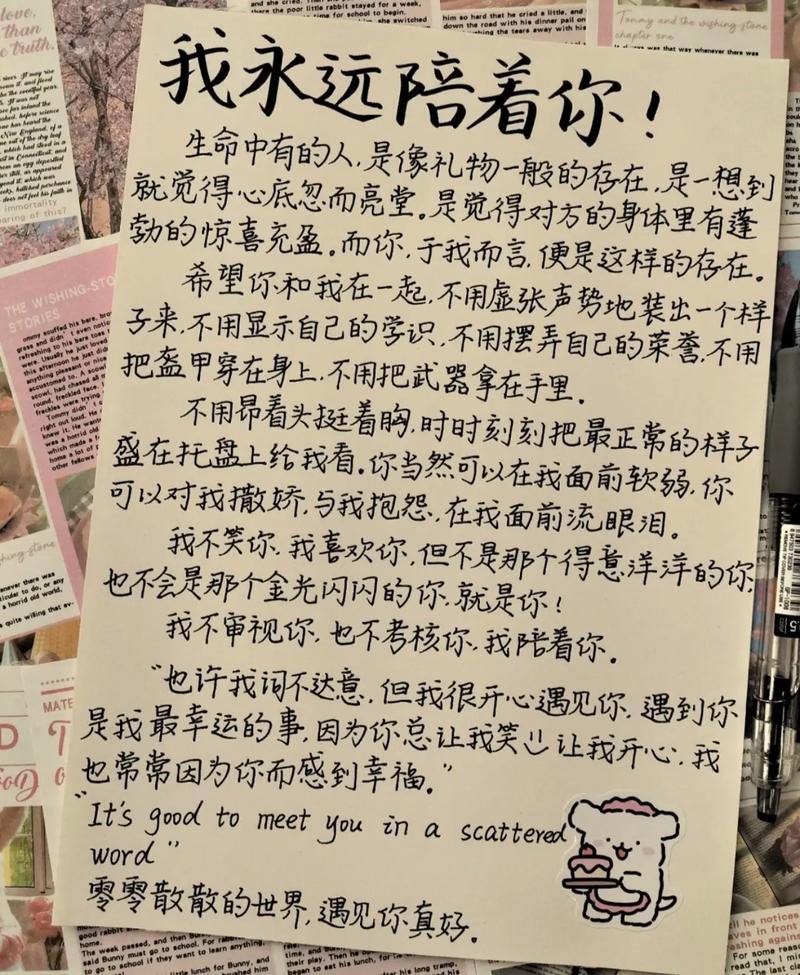 我永远陪着你！
生命中有的人，是像礼物一般的存在，是一想到
就觉得心底忽而亮堂。是觉得对方的身体里有蓬
勃的惊喜充盈。而你，于我而言，便是这样的存在。
希望你和我在一起，不用虚张声势地装出一个样
子来，不用显示自己的学识，不用摆弄自己的荣誉，不用
把盔甲穿在身上，不用把武器拿在手里。
不用昂着头挺着胸，时时刻刻把最正常的样子
盛在托盘上给我看。你当然可以在我面前软弱，你
可以对我撒娇，与我抱怨，在我面前流眼泪。
我不笑你，我喜欢你，但不是那个得意洋洋的你，
也不会是那个金光闪闪的你，就是你！
我不审视你，也不考核你，我陪着你。
“也许我词不达意，但我很开心遇见你，遇到你
是我最幸运的事，因为你总让我笑 让我开心，我
也常常因为你而感到幸福。”
“It's good to meet you in a scattered
word”
零零散散的世界，遇见你真好。
THE WISHING-STO
STORIES
Tommy and the wishing-stone
chapter one